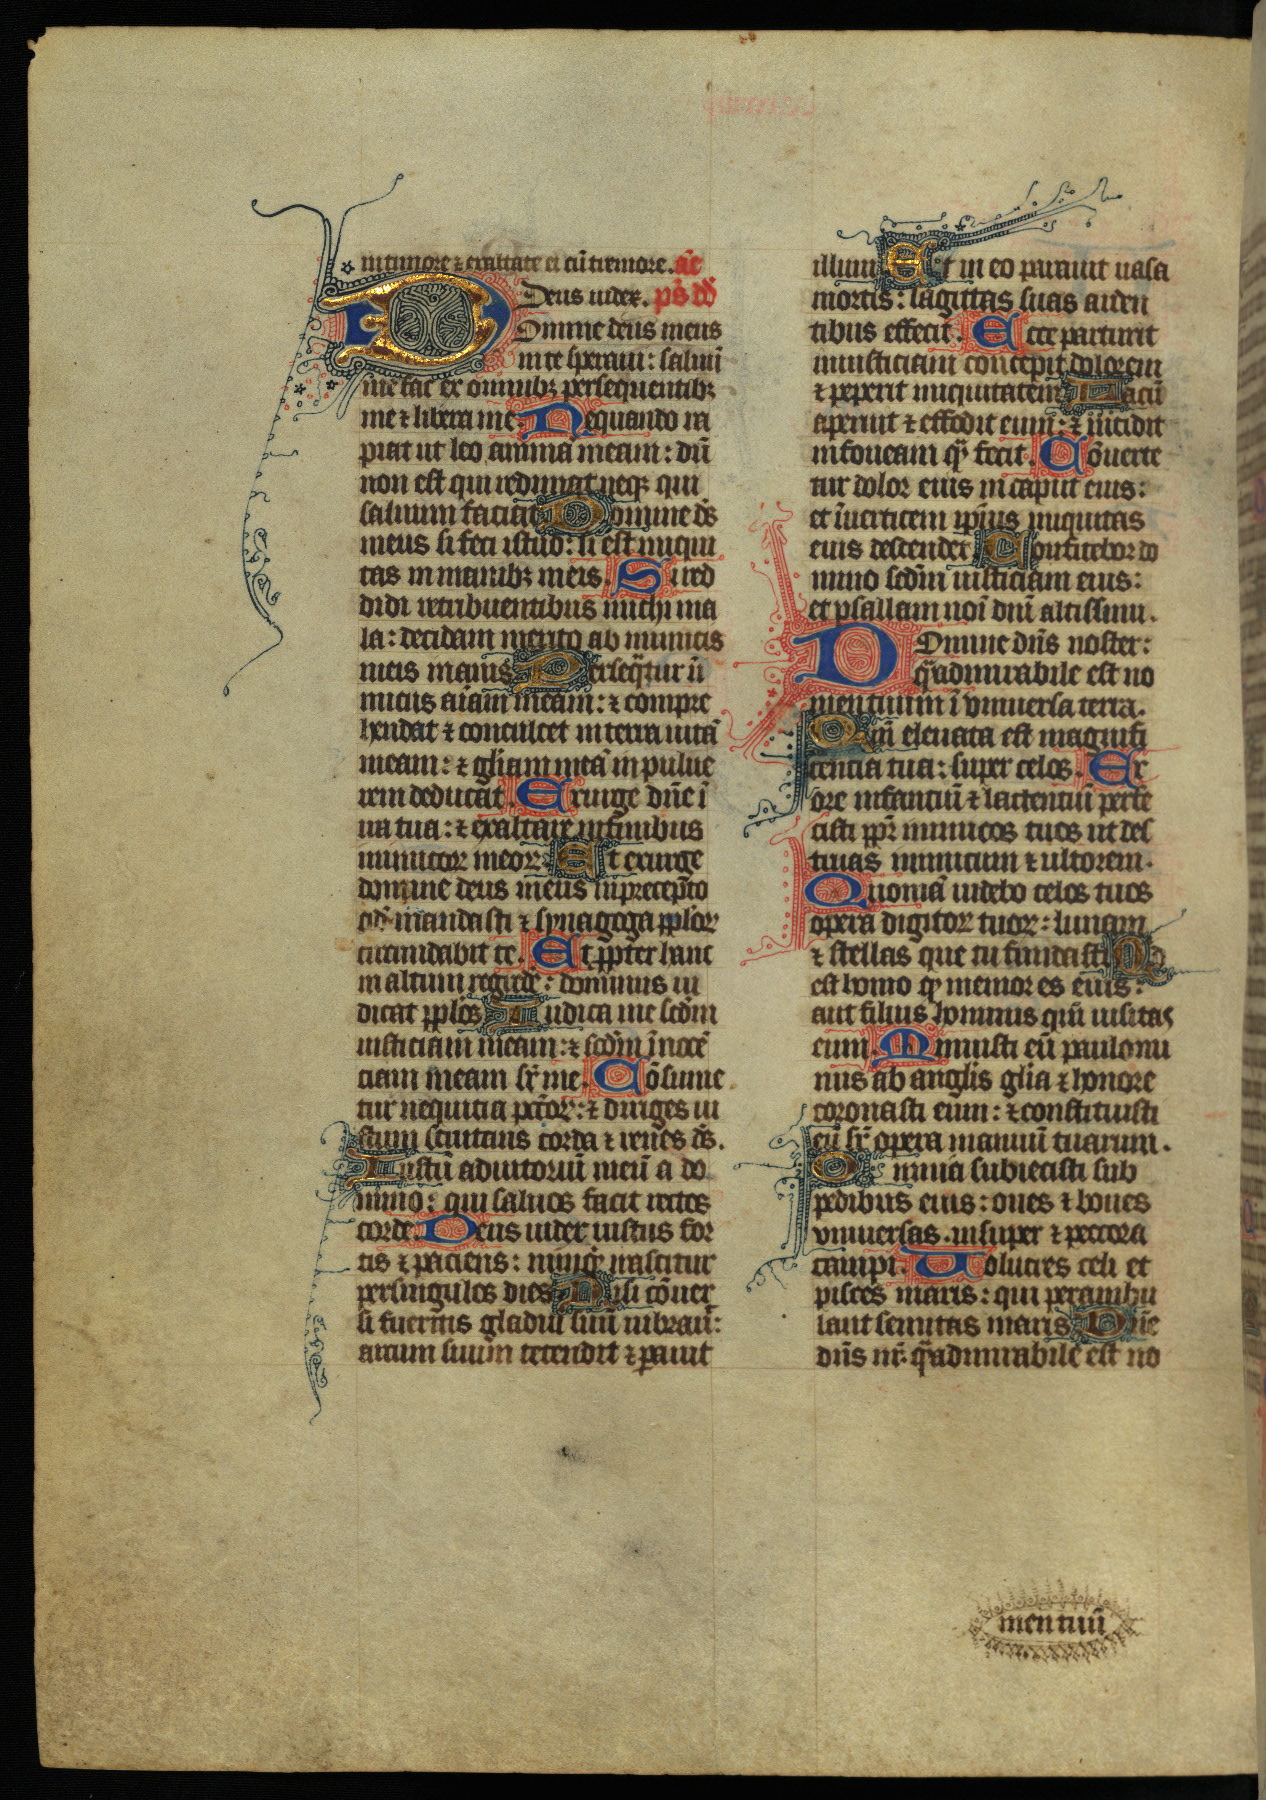 in timore ⁊ exultate ei cū tremore. añ
Deus iudex. ps̄ dd̄
Domine deus meus
in te speraui: saluū
me fac ex omnibꝫ persequentibꝫ
me ⁊ libera me. Nequando ra
piat ut leo animā meam: dū
non est qui redimat neqꝫ qui
saluum faciat. Domine ds̄
meus si feci istud: si est iniqui
tas in manibꝫ meis. Si red
didi retribuentibus michi ma
la: decidam merito ab inimicis
meis inanis. Persequatur in̄
micus aīam meam: ⁊ compre
hendat ⁊ conculcet in terra uitā
meam: ⁊ gl̄iam meā in pulue
rem deducat. Exurge dn̄e ī
ira tua: ⁊ exaltare in finibus
inimicoꝝ meoꝝ. Et exurge
domine deus meus in precep̄to
qd̄ mandasti ⁊ synagoga ppl̄oꝝ
circumdabit te. Et ꝓpter hanc
in altum regredē: dominus iu
dicat ppl̄os. Iudica me sed̄m
iusticiam meam: ⁊ sed̄m īnocē
ciam meam sr̄ me. Cōsume
tur nequitia pctōꝝ: ⁊ diriges iu
stum scrutans corda ⁊ renes ds̄.
Iustū adiutoriū meū a do
mino: qui saluos facit rectos
corde. Deus iudex iustus for
tis ⁊ paciens: nūnqͥd irascitur
per singulos dies. Nisi cōuer
si fueritis gladiū suū uibrauī:
arcum suum tetendit ⁊ parauit
illum. Et in eo parauit uasa
mortis: sagittas suas arden
tibus effecit. Ecce parturit
iniusticiam concepit dolorem
⁊ peperit iniquitatem. Lacū
aperuit ⁊ effodit eum: ⁊ īncidit
in foueam qͣ fecit. Cōuerte
tur dolor eius in caput eius:
et ī uerticem ip̄ius iniquitas
eius descendet. Confitebor do
mino sed̄m iusticiam eius:
et psallam noī dnī altissimi.
Domine dn̄s noster:
qͣ admirabile est no
men tuum ī vniuersa terra.
Qm̄ eleuata est magnifi
cencia tua: super celos. Ex
ore infantiū ⁊ lactentiū perfe
cisti ꝓpr̄ inimicos tuos ut des
truas inimicum ⁊ ultorem.
Quoniā uidebo celos tuos
opera digitoꝝ tuoꝝ: lunam
⁊ stellas que tu fundasti. Qd̄
est homo qͩ memor es eius:
aut filius hominis qm̄ uisitas
eum. Minuisti eū paulo mi
nus ab angl̄is gl̄ia ⁊ honore
coronasti eum: ⁊ constituisti
eū sr̄ opera manuū tuarum.
Omnia subiecisti sub
pedibus eius: oues ⁊ boues
vniuersas. insuper ⁊ peccora
campi. Volucres celi et
pisces maris: qui perambu
lant semitas maris. Dn̄e
dn̄s nr̄. qͣ admirabile est no
men tuū